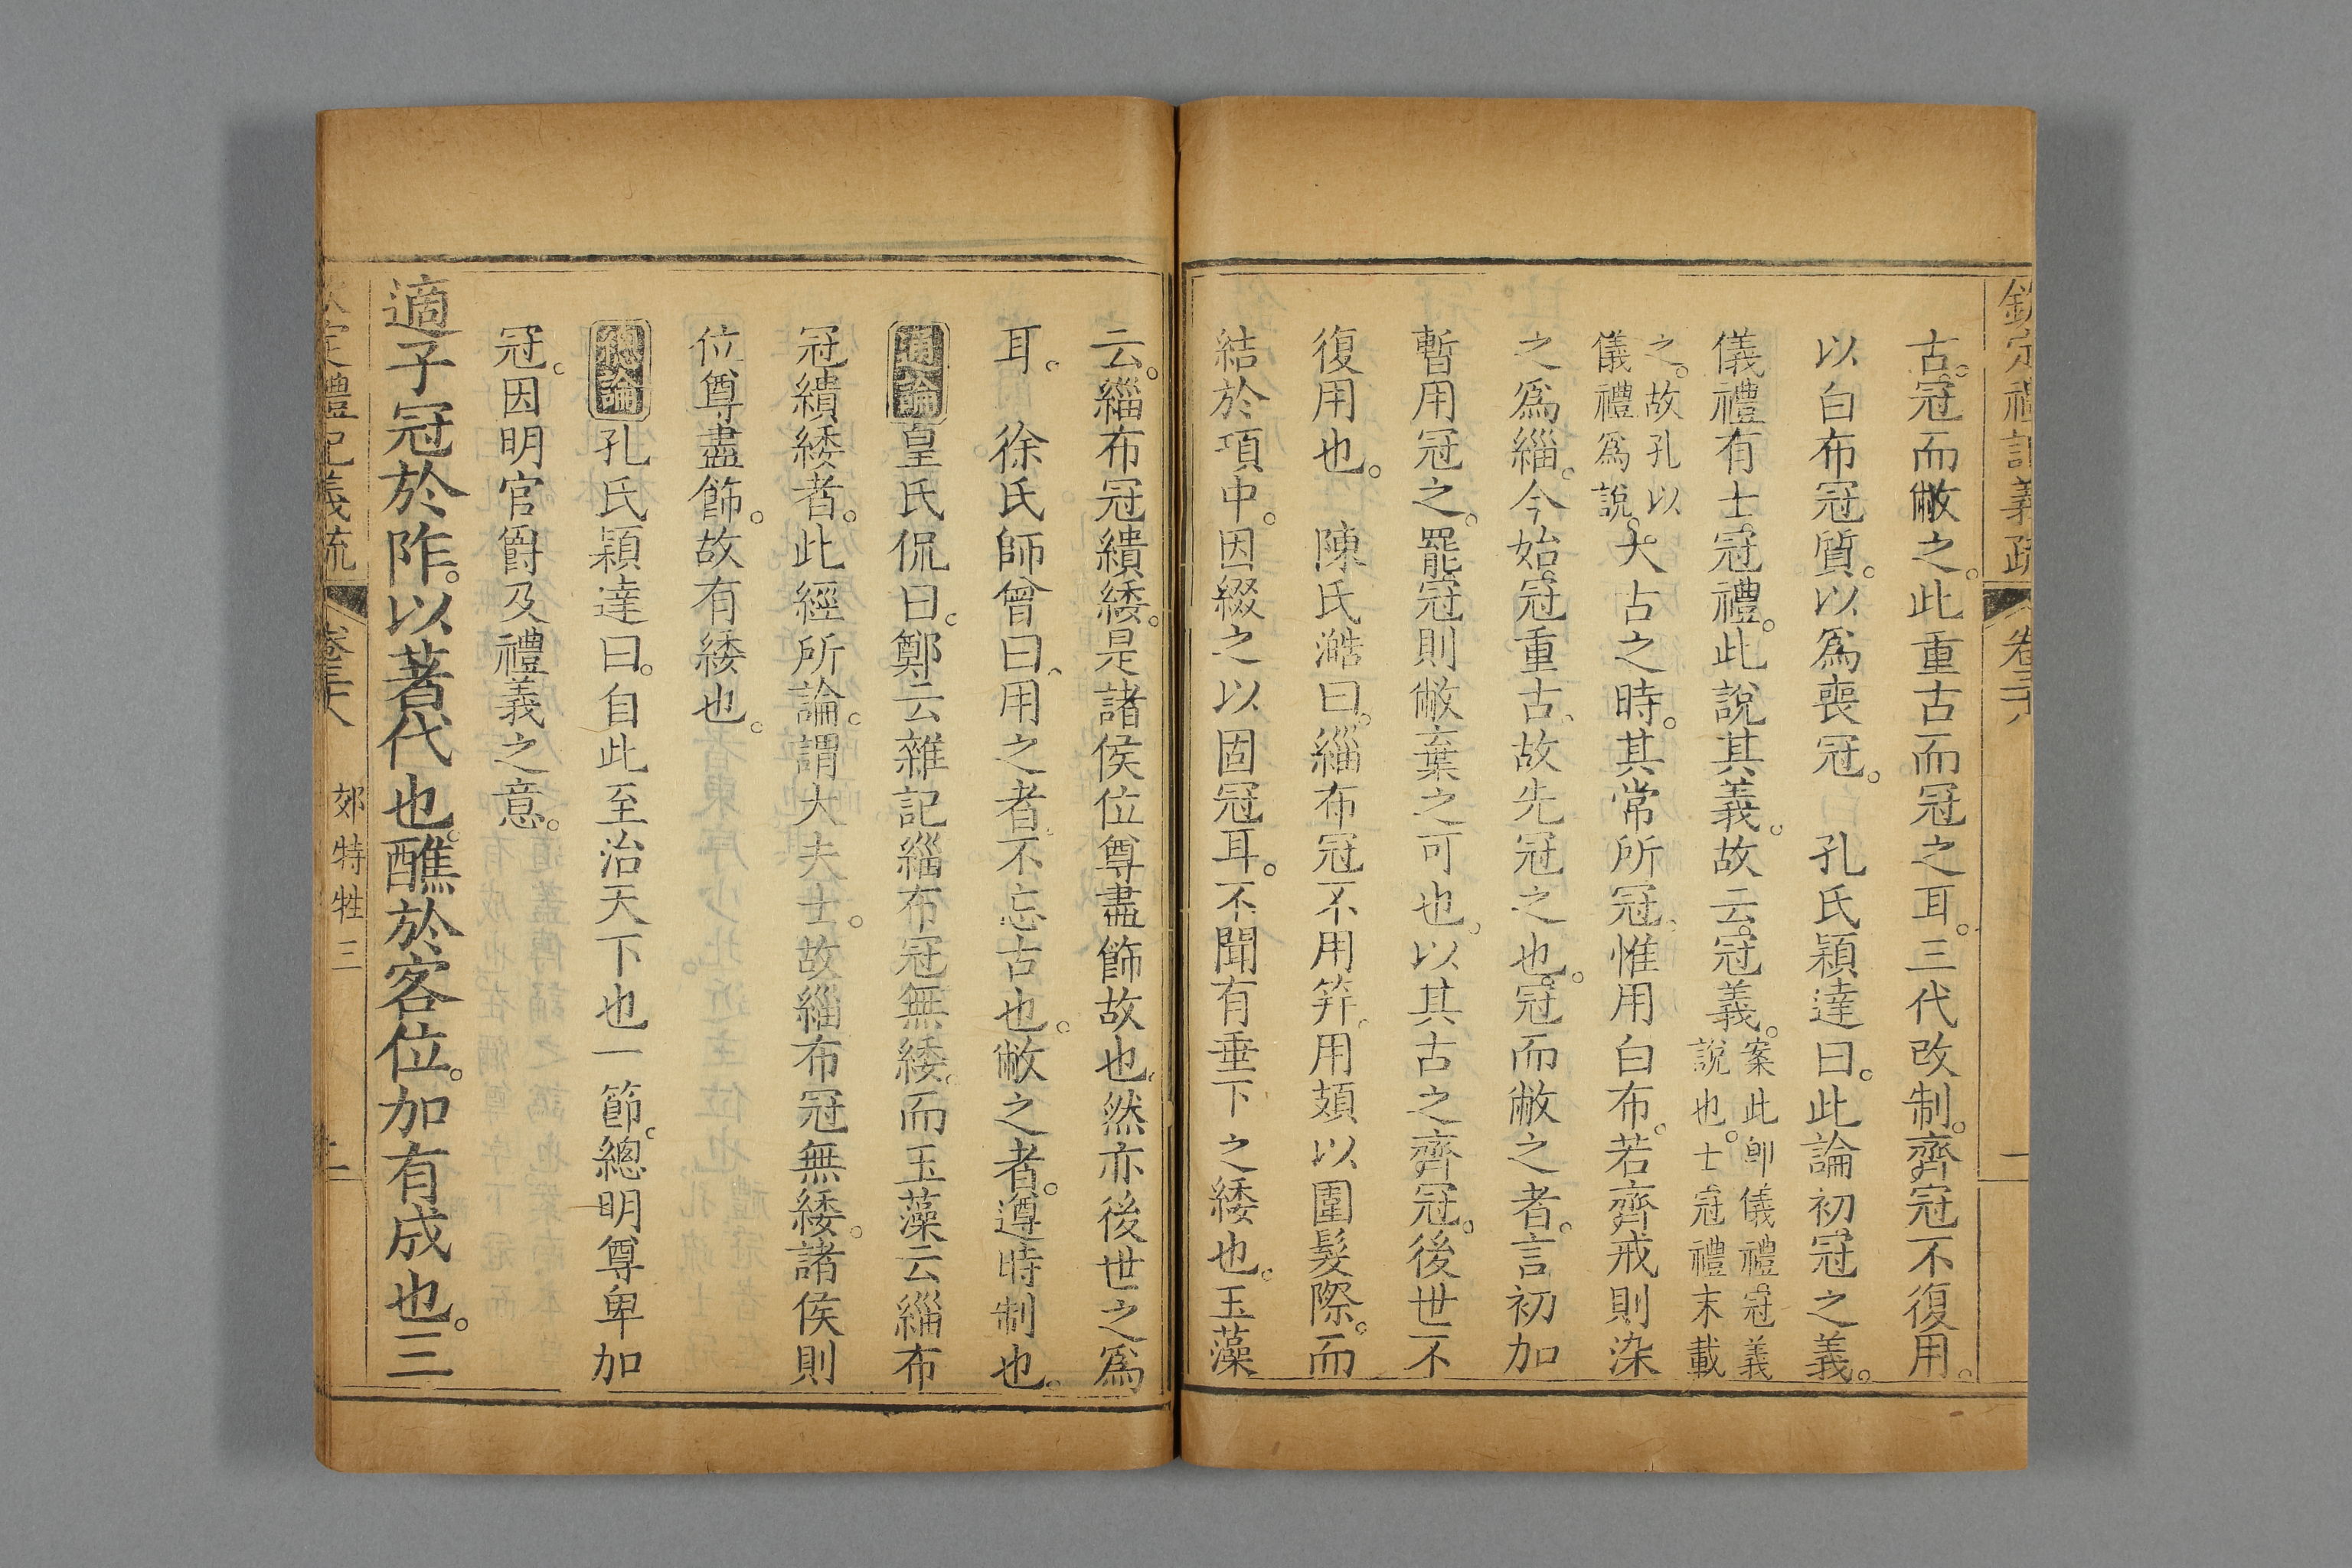 欽定禮記義疏 卷三十八 一
古。冠而敝之。此重古而冠之耳。三代改制。齊冠不復用。
以白布冠質。以爲喪冠。 孔氏穎達曰。此論初冠之義。
儀禮有士冠禮。此說其義。故云冠義。案此卽儀禮冠義說也。士冠禮末載
之。故孔以儀禮爲說。大古之時。其常所冠。惟用白布。若齊戒則染
之爲緇。今始冠重古。故先冠之也。冠而敝之者。言初加
暫用冠之。罷冠則敝棄之可也。以其古之齊冠。後世不
復用也。 陳氏澔曰。緇布冠不用笄。用頍以圍髮際。而
結於項中。因綴之以固冠耳。不聞有垂下之緌也。玉藻
云。緇布冠繢緌。是諸侯位尊盡飾故也。然亦後世之爲
耳。 徐氏師曾曰。用之者。不忘古也。敝之者。遵時制也。
通論皇氏侃曰。鄭云雜記緇布冠無緌。而玉藻云緇布
冠繢緌者。此經所論。謂大夫士。故緇布冠無緌。諸侯則
位尊盡飾。故有緌也。
總論孔氏穎達曰。自此至治天下也一節。總明尊卑加
冠。因明官爵及禮義之意。
適子冠於阼。以著代也。醮於客位。加有成也。三
欽定禮記義疏 卷三十八 郊特牲三